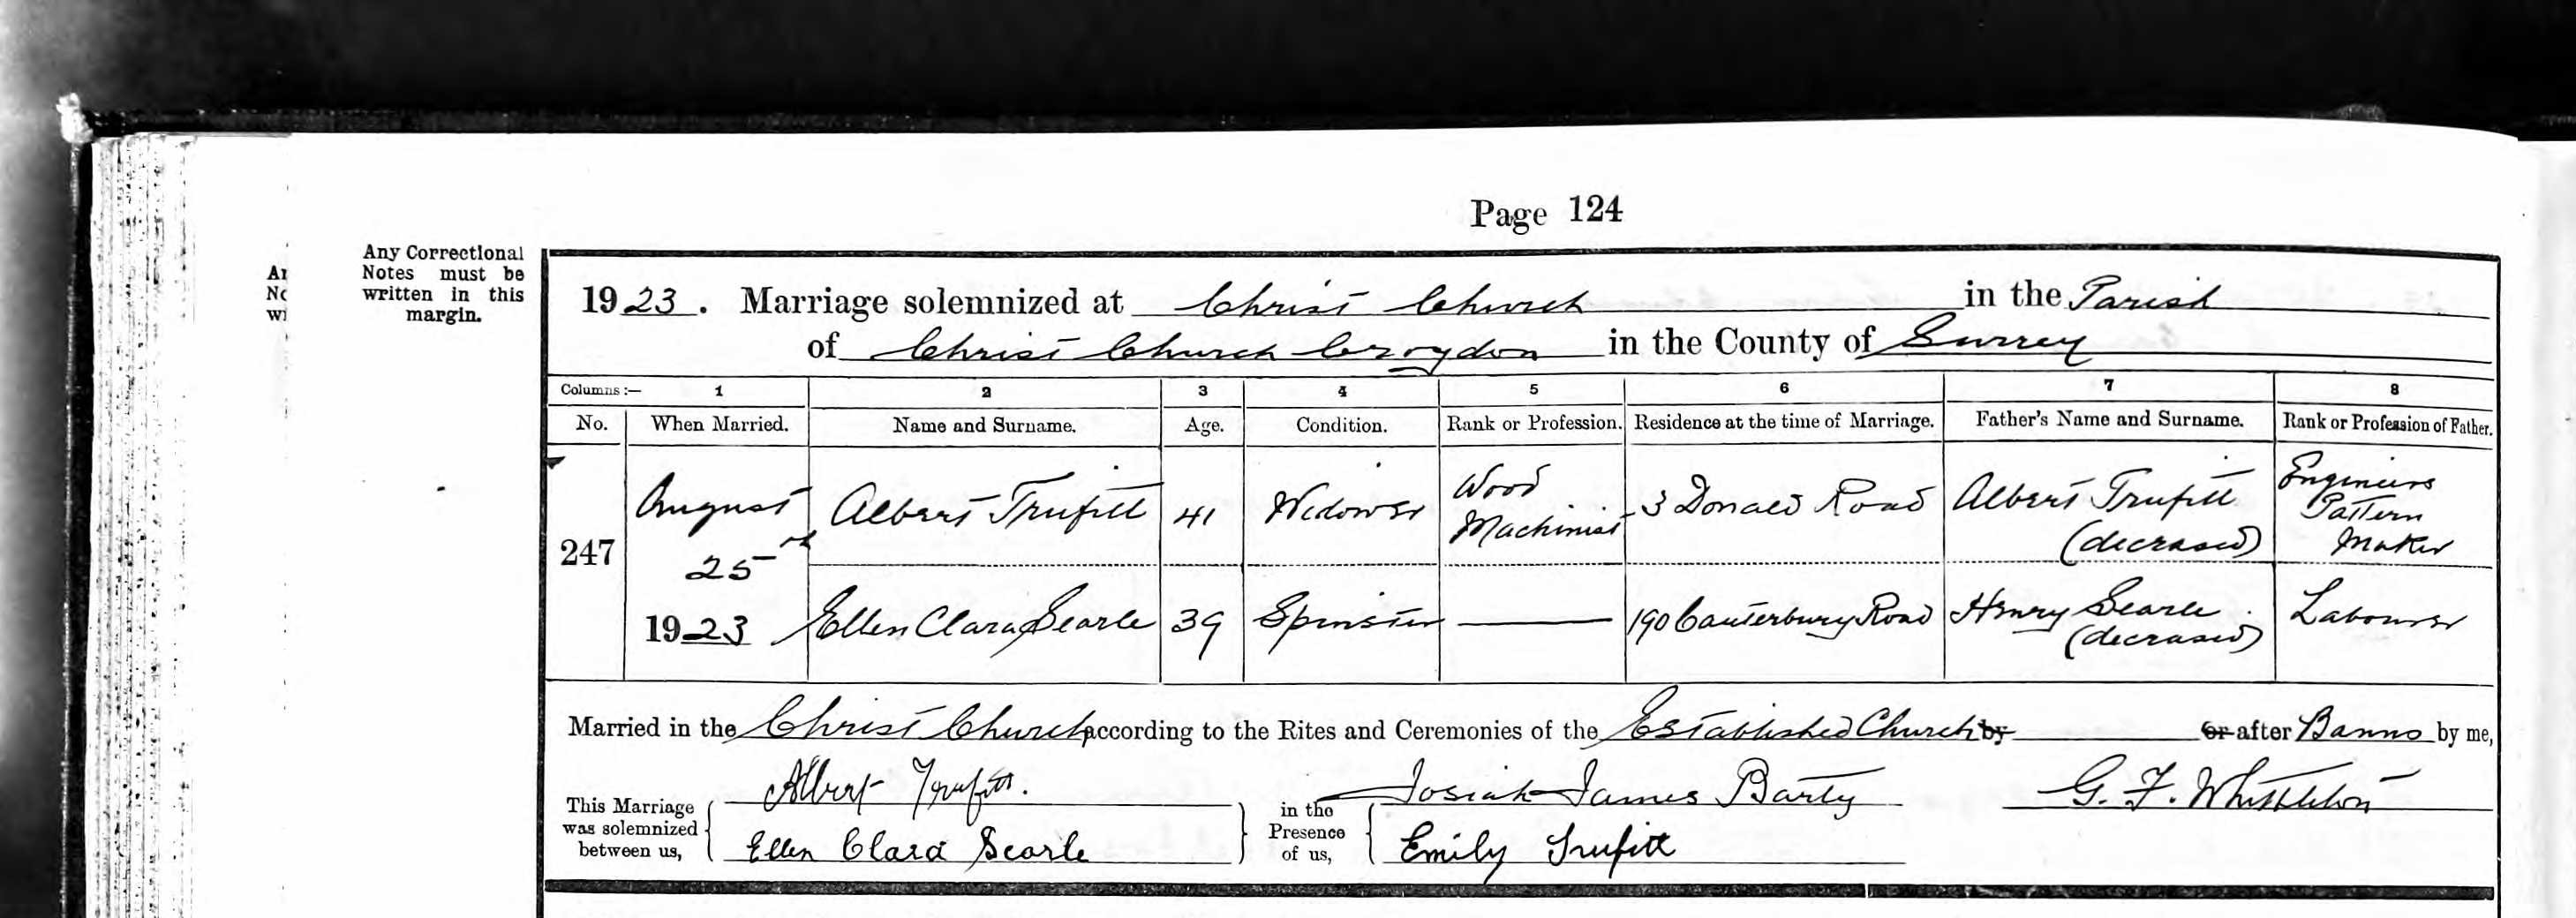 Page 124
Any Correctional
Notes must be
written in this
margin.
1923. Marriage solemnized at Christ Church in the Parish
of Christ Church Croydon in the County of Surrey
Columns :— 1 2 3 4 5 6 7 8
No. When Married. Name and Surname. Age. Condition. Rank or Profession. Residence at the time of Marriage. Father's Name and Surname. Rank or Profession of Father.
247 August 25th 1923 Albert Trufitt 41 Widower Wood Machinist 3 Donald Road Albert Trufitt (deceased) Engineers Pattern Maker
Ellen Clara Searle 39 Spinster — 190 Canterbury Road Henry Searle (deceased) Labourer
Married in the Christ Church according to the Rites and Ceremonies of the Established Church by or after Banns by me,
This Marriage
was solemnized
between us,
Albert Trufitt.
Ellen Clara Searle
in the
Presence
of us,
Josiah James Barty
Emily Trufitt
G. F. Whittleton